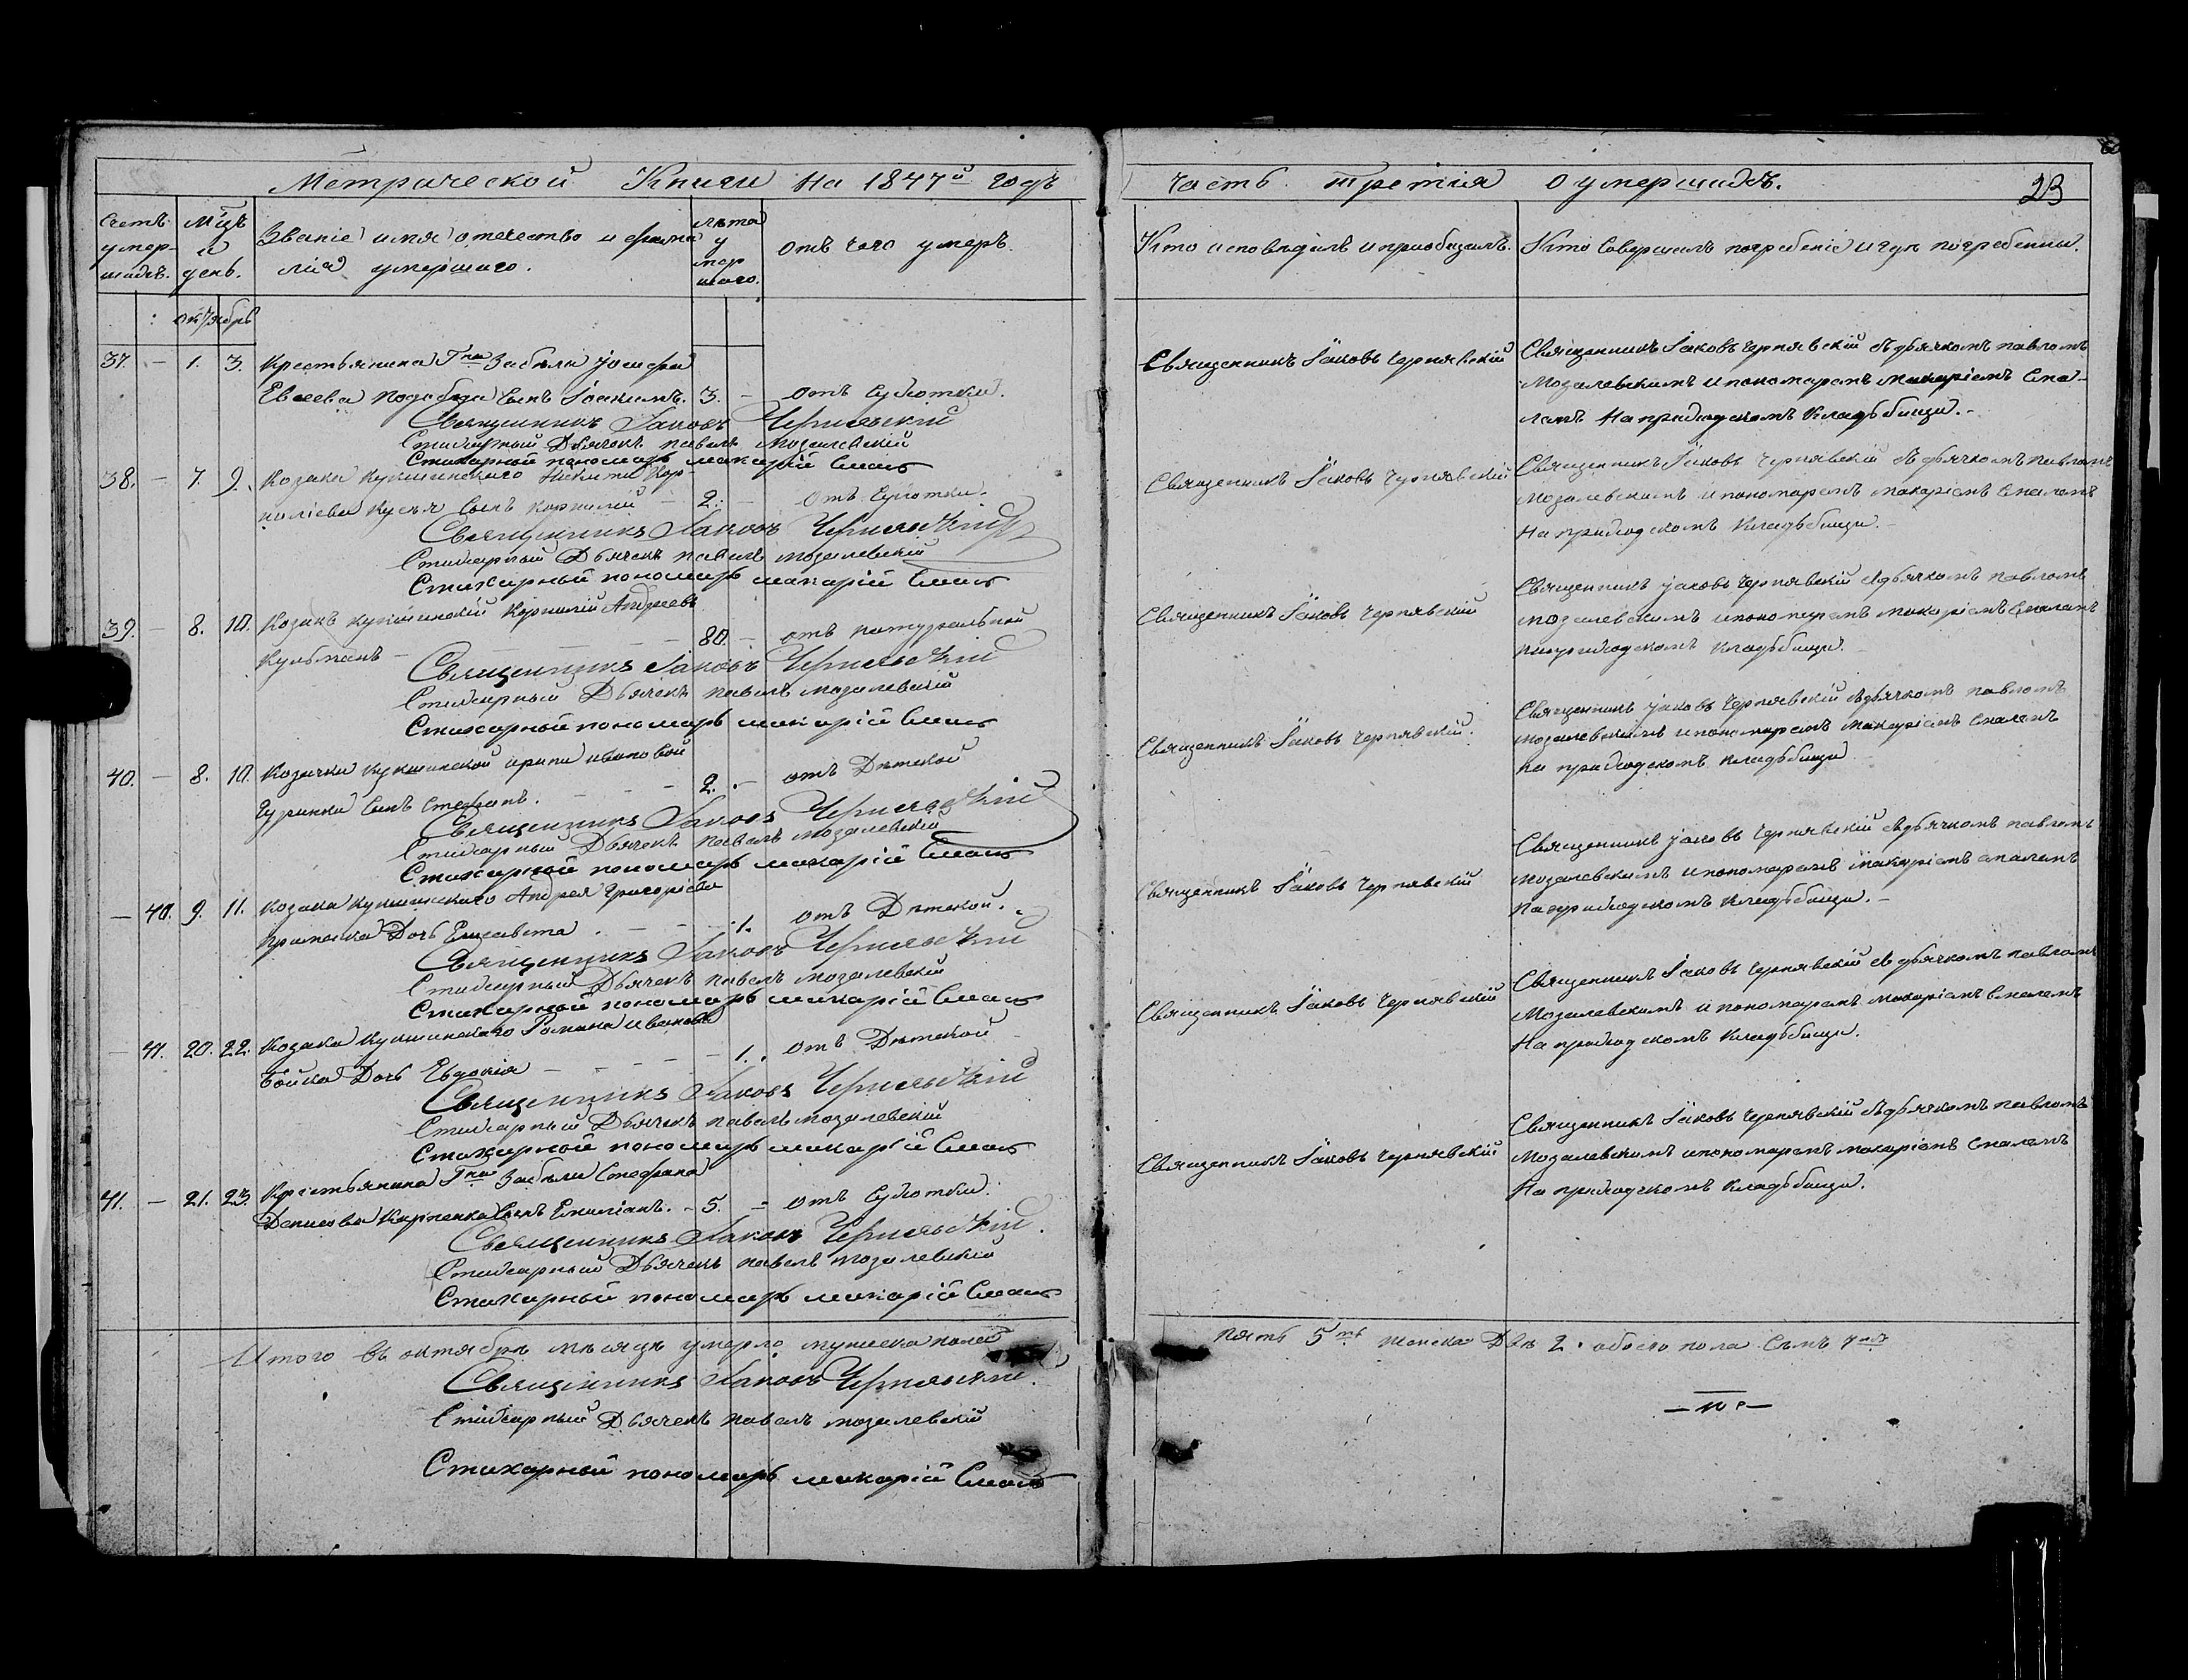 Метрической Книги на 1847й годъ
часть третія о умершихъ.
23
Счетъ умер-шихъ.
Мцъ и день.
Званіе имя отечество и фами-
лія умершаго.
Лѣта умершаго.
отъ чего умеръ.
Кто исповѣдалъ и пріобщалъ.
Кто Совершалъ погребеніе и гдѣ погребены.
октябрь
37. – 1. 3. Крестьянина Гна Забѣлы
Евсеева сынъ Іоакимъ. 3. – отъ
Священникъ Іаковъ Чернявскій
Стихарный Дьячекъ павелъ Мозалевскій
Стихарный пономарь макарій
Священникъ Іаковъ Чернявскій
Священникъ Іаковъ Чернявскій съ дьячкомъ павломъ
Мозалевскимъ и пономаремъ макаріемъ
На приходскомъ кладьбищи.-
38. – 7. 9. Козака Никити Кор-
ниліева сынъ корнилій – 2. – отъ
Священникъ Іаковъ Чернявскій
Стихарный Дьячекъ павелъ мозалевскій
Стихарный пономарь макарій
Священникъ Іаковъ Чернявскій
Священникъ Іаковъ Чернявскій съ дьячкомъ павломъ
Мозалевскимъ и пономаремъ макаріемъ
На приходскомъ кладьбищи.-
39. – 8. 10. Козакъ Корнилій Андреевъ
– 80 – отъ натуральной
Священникъ Іаковъ Чернявскій
Стихарный Дьячекъ павелъ мозалевскій
Стихарный пономарь макарій
Священникъ Іаковъ Чернявскій
Священникъ Іаковъ Чернявскій съ дьячкомъ павломъ
мозалевскимъ и пономаремъ макаріемъ
на приходскомъ кладьбищи.
40. – 8. 10. Козачки ирини ивановой
сынъ Стефанъ. – 2. – отъ Дѣтской
Священникъ Іаковъ Чернявскій
Стихарный Дьячекъ павелъ мозалевскій
Стихарный пономарь макарій
Священникъ Іаковъ Чернявскій.
Священникъ Іаковъ Чернявскій съ дьячкомъ павломъ
мозалевскимъ и пономаремъ макаріемъ
на приходскомъ кладьбищи
– 40. 9. 11. Козака Андрея Григоріева
Дочь Елисавета. – 1. отъ Дѣтской.
Священникъ Іаковъ Чернявскій
Стихарный Дьячекъ павелъ мозалевскій
Стихарный пономарь макарій
Священникъ Іаковъ Чернявскій
Священникъ Іаковъ Чернявскій съ дьячкомъ павломъ
мозалевскимъ и пономаремъ макаріемъ
На приходскомъ кладьбищи.-
– 41. 20. 22. Козака Романа иванова
Бойка Дочь Евдокія – 1. отъ Дѣтской
Священникъ Іаковъ Чернявскій
Стихарный Дьячекъ павелъ мозалевскій
Стихарный пономарь макарій
Священникъ Іаковъ Чернявскій
Священникъ Іаковъ Чернявскій съ дьячкомъ павломъ
Мозалевскимъ и пономаремъ макаріемъ
На приходскомъ кладьбищи.
41. – 21. 23. Крестьянина Гна Забѣлы Стефана
Денисова Карпенка сынъ Емиліанъ. – 5. – отъ
Священникъ Іаковъ Чернявскій.
Стихарный Дьячекъ павелъ мозалевскій
Стихарный пономарь макарій
Священникъ Іаковъ Чернявскій
Священникъ Іаковъ Чернявскій съ дьячкомъ павломъ
Мозалевскимъ и пономаремъ макаріемъ
На приходскомъ кладьбищи.
Итого въ октябрѣ мѣсяцѣ умерло мужеска пола
пять 5ть женска Двѣ 2. обоего пола Семъ 7мъ
Священникъ Іаковъ Чернявскій.
Стихарный Дьячекъ павелъ мозалевскій
Стихарный пономарь макарій